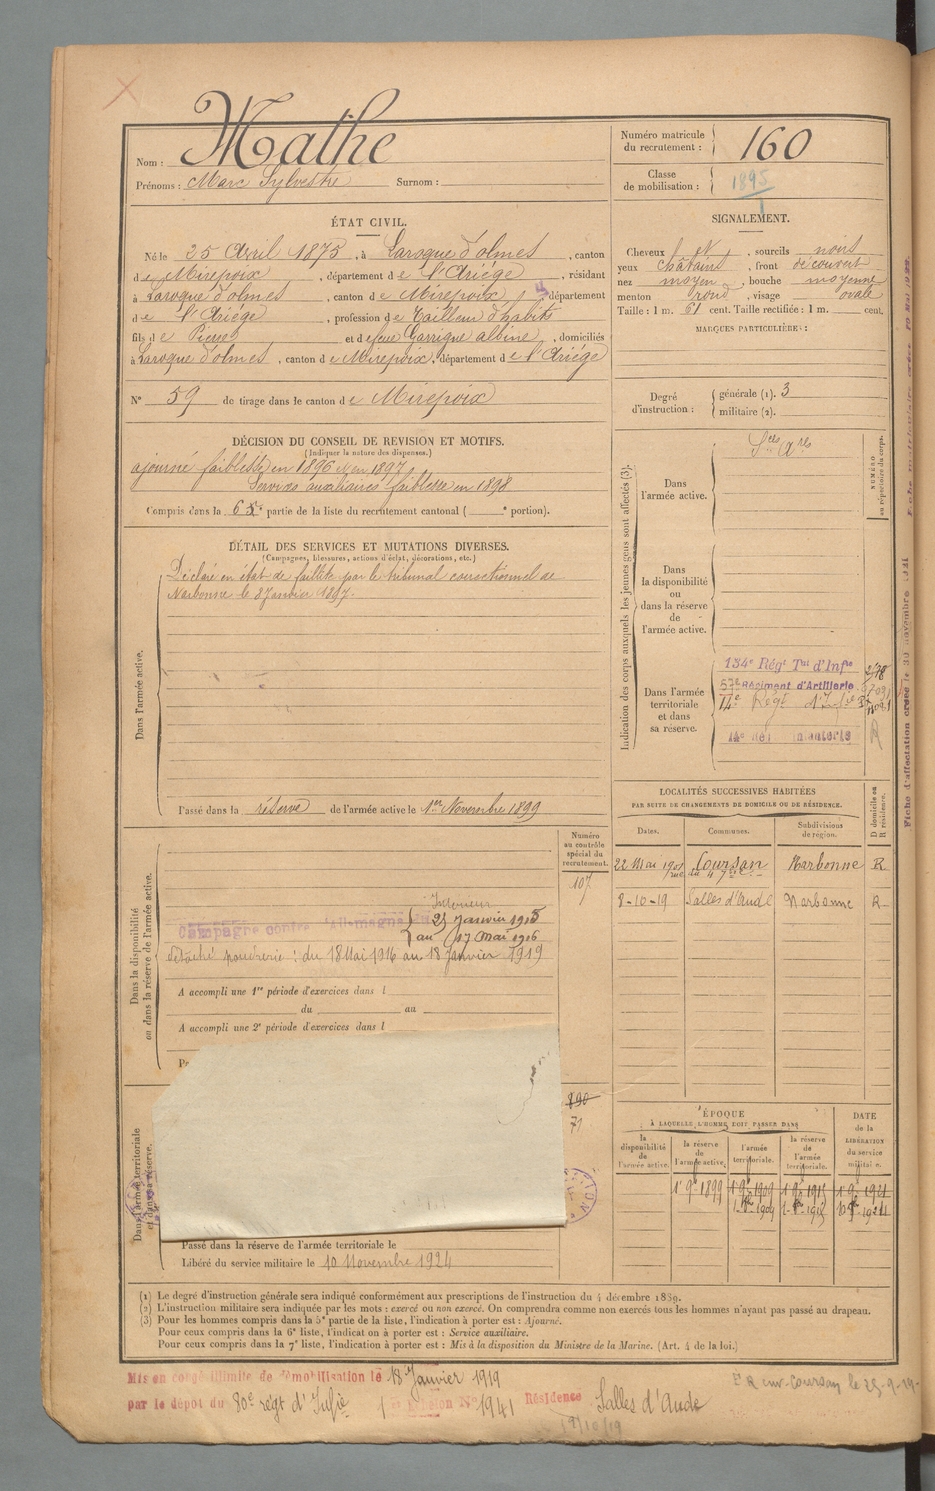 Nom : Mathe
Prénoms : Marc Sylvestre Surnom :
Numéro matricule du recrutement : 160
Classe de mobilisation : 1895
ÉTAT CIVIL.
Né le 25 Avril 1875, à Laroque d'olmes, canton
de Mirepoix, département de l'Ariége, résidant
à Laroque d'olmes, canton de Mirepoix, département
de l'Ariége, profession de Tailleur d'habits
fils de Pierre et de feue Garrigue albine, domiciliés
à Laroque d'olmes, canton de Mirepoix, département de l'Ariége
N° 59 de tirage dans le canton de Mirepoix
SIGNALEMENT.
Cheveux , sourcils noirs
yeux châtains, front découvert
nez moyen, bouche moyenne
menton rond, visage ovale
Taille : 1 m. 61 cent. Taille rectifiée : 1 m. cent.
MARQUES PARTICULIÈRES :
Degré d'instruction :
générale (1). 3
militaire (2).
DÉCISION DU CONSEIL DE REVISION ET MOTIFS.
(Indiquer la nature des dispenses.)
ajourné faiblesse en 1896 en 1897
Services auxiliaires faiblesse en 1898
Compris dans la 6e partie de la liste du recrutement cantonal ( e portion).
DÉTAIL DES SERVICES ET MUTATIONS DIVERSES.
(Campagnes, blessures, actions d'éclat, décorations, etc.)
Dans l'armée active.
Déclaré en état de faillite par le tribunal correctionnel de
Narbonne le 8 Janvier 1897.
Passé dans la réserve de l'armée active le 1er Novembre 1899
Indication des corps auxquels les jeunes gens sont affectés (3).
NUMÉRO au répertoire du corps.
Dans l'armée active.
Dans la disponibilité ou dans la réserve de l'armée active.
Dans l'armée territoriale et dans sa réserve.
134e Régt Tal d'Infie
57e Régiment d'Artillerie
14e Régt
R
Fiche d'affectation créée le 30 novembre
LOCALITÉS SUCCESSIVES HABITÉES
PAR SUITE DE CHANGEMENTS DE DOMICILE OU DE RÉSIDENCE.
Dates. Communes. Subdivisions de région. D domicile ou R résidence.
22 Mai 1901 Coursan Narbonne R
rue du 4 7bre
8-10-19 Salles d'Aude Narbonne R
Dans la disponibilité ou dans la réserve de l'armée active.
Numéro au contrôle spécial du recrutement.
107
Intérieur
Campagne contre l'Allemagne du 25 Janvier 1915
au 17 Mai 1916
détaché poudrerie : du 18 Mai 1916 au 18 Janvier 1919
A accompli une 1re période d'exercices dans l
du au
A accompli une 2e période d'exercices dans l
890
71
Dans l'armée territoriale et dans sa réserve.
Passé dans la réserve de l'armée territoriale le
Libéré du service militaire le 10 Novembre 1924
ÉPOQUE
À LAQUELLE L'HOMME DOIT PASSER DANS
la disponibilité de l'armée active.
la réserve de l'armée active.
l'armée territoriale.
la réserve de l'armée territoriale.
DATE de la LIBÉRATION du service militaire.
1 9e 1899
(1) Le degré d'instruction générale sera indiqué conformément aux prescriptions de l'instruction du 4 décembre 1889.
(2) L'instruction militaire sera indiquée par les mots : exercé ou non exercé. On comprendra comme non exercés tous les hommes n'ayant pas passé au drapeau.
(3) Pour les hommes compris dans la 5e partie de la liste, l'indication à porter est : Ajourné.
Pour ceux compris dans la 6e liste, l'indication à porter est : Service auxiliaire.
Pour ceux compris dans la 7e liste, l'indication à porter est : Mis à la disposition du Ministre de la Marine. (Art. 4 de la loi.)
Mis en congé illimité de démobilisation le 18 Janvier 1919
par le dépôt du 80e régt d'Infie échelon No 1941 Résidence Salles d'Aude